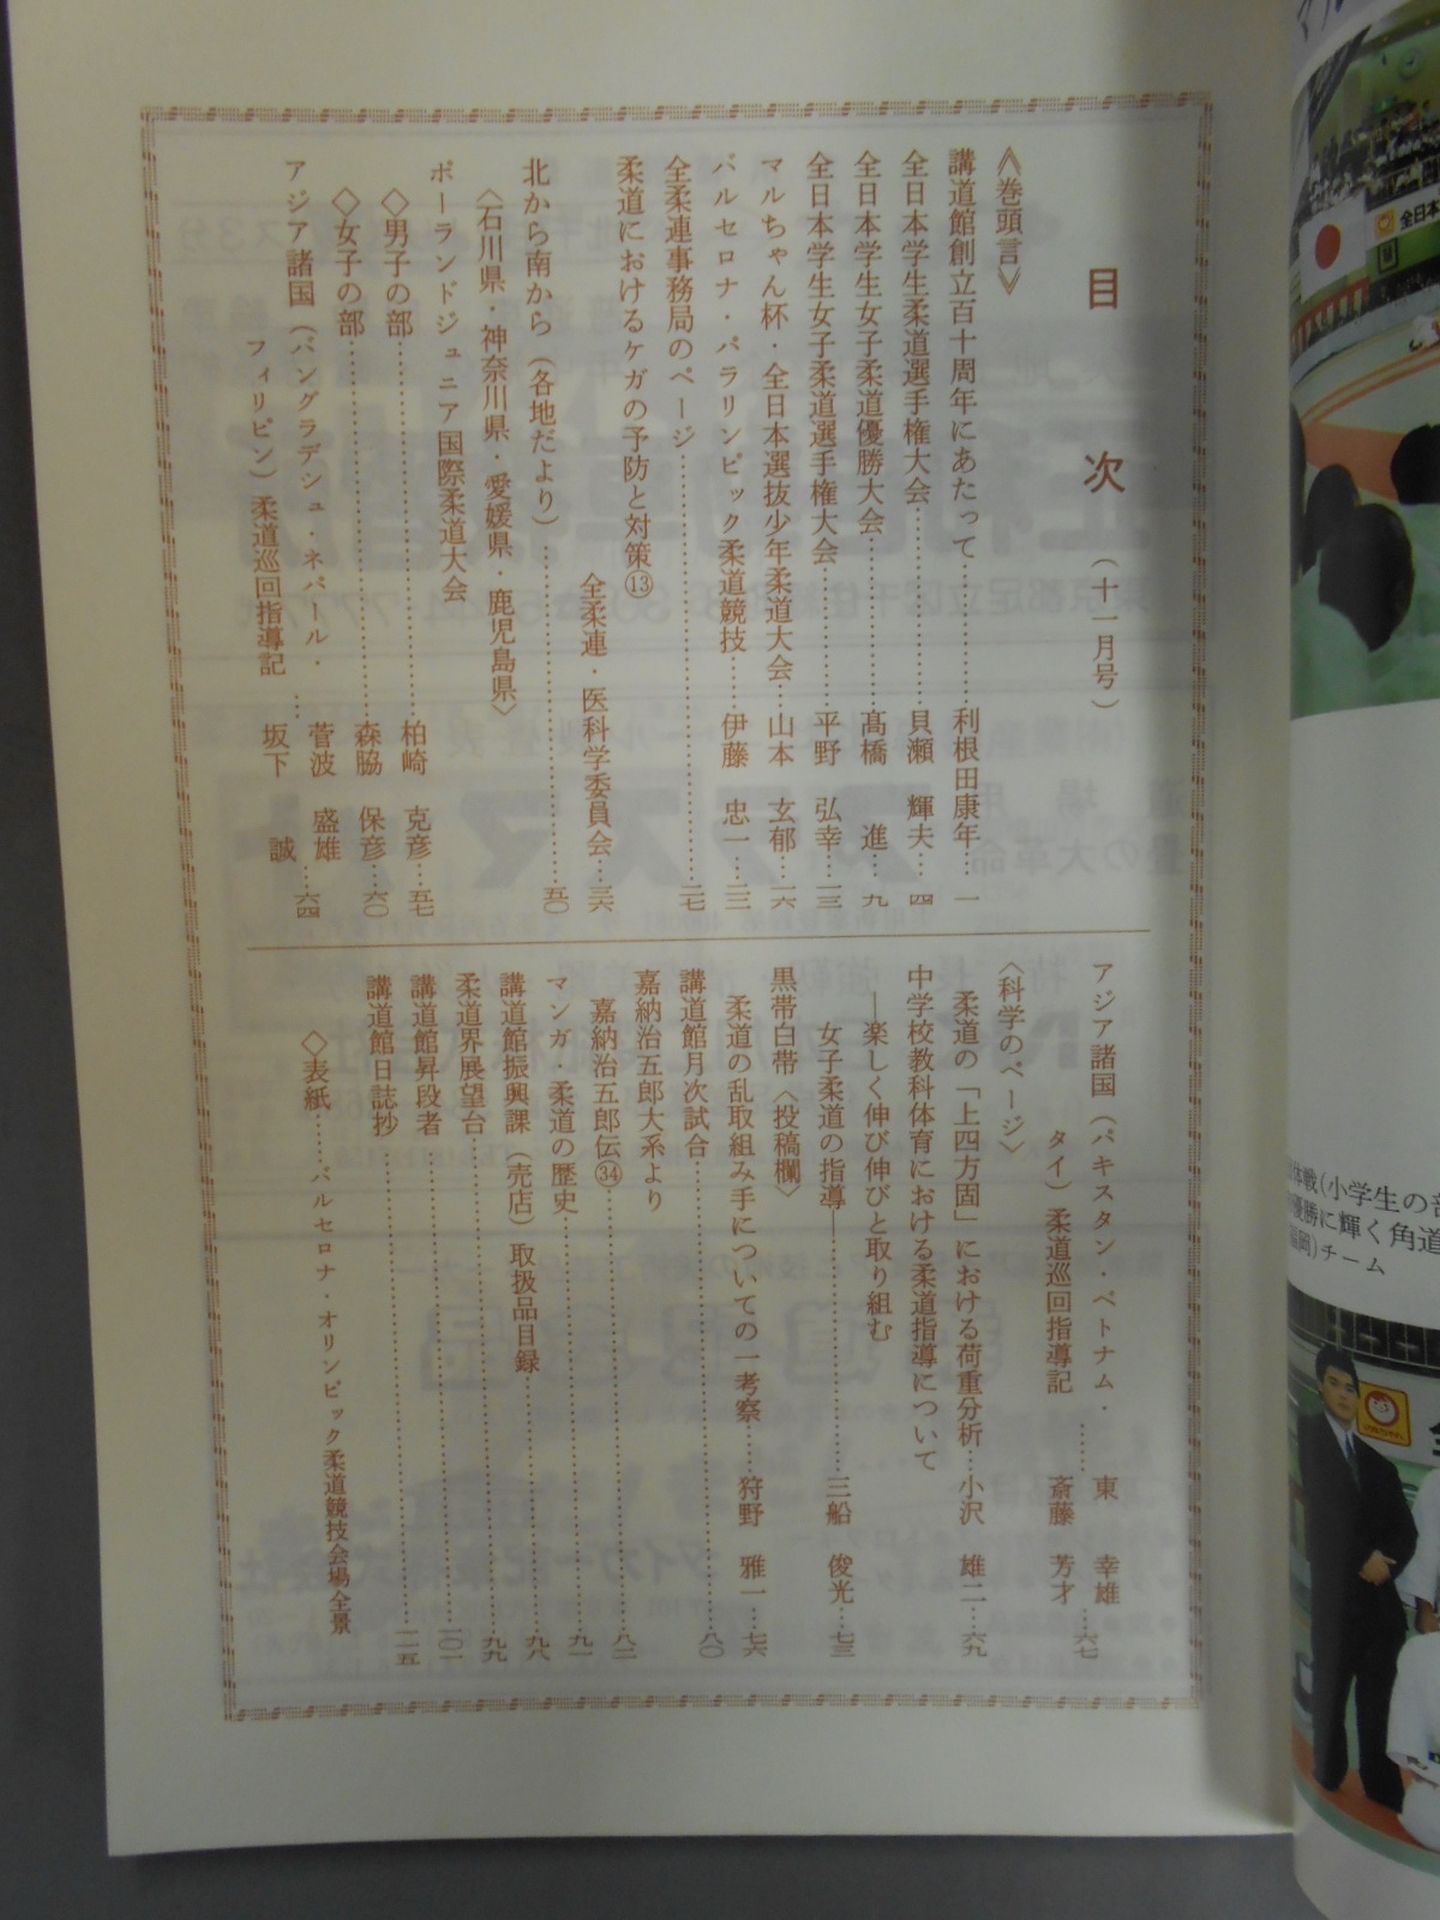 目次（十一月号）
《巻頭言》
講道館創立百十周年にあたって…………利根田康年…一
全日本学生柔道選手権大会…………貝瀬　輝夫…四
全日本学生女子柔道優勝大会…………髙橋　進…九
全日本学生女子柔道選手権大会…………平野　弘幸…一三
マルちゃん杯・全日本選抜少年柔道大会…山本　玄郁…一六
バルセロナ・パラリンピック柔道競技……伊藤　忠一…二二
全柔連事務局のページ…………二七
柔道におけるケガの予防と対策⑬
全柔連・医科学委員会…三六
北から南から（各地だより）…………五〇
〈石川県・神奈川県・愛媛県・鹿児島県〉
ポーランドジュニア国際柔道大会
◇男子の部…………柏崎　克彦…五七
◇女子の部…………森脇　保彦…六〇
アジア諸国（バングラデシュ・ネパール・
フィリピン）柔道巡回指導記……菅波　盛雄
坂下　誠…六四
アジア諸国（パキスタン・ベトナム・
タイ）柔道巡回指導記……東　幸雄
斎藤　芳才…六七
〈科学のページ〉
柔道の「上四方固」における荷重分析…小沢　雄二…六九
中学校教科体育における柔道指導について
―楽しく伸び伸びと取り組む
女子柔道の指導―…………三船　俊光…七三
黒帯白帯〈投稿欄〉
柔道の乱取組み手についての一考察……狩野　雅一…七六
講道館月次試合…………八〇
嘉納治五郎大系より
嘉納治五郎伝㉞…………八二
マンガ・柔道の歴史…………九一
講道館振興課（売店）取扱品目録…………九八
柔道界展望台…………九九
講道館昇段者…………一〇一
講道館日誌抄…………一一五
◇表紙……バルセロナ・オリンピック柔道競技会場全景
全日本
体戦（小学生の部
優勝に輝く角道
福岡）チーム